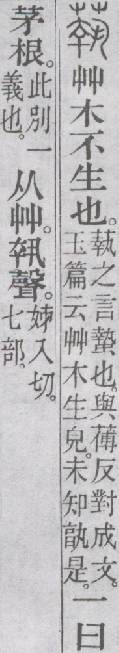 蓻艸木不生也。
蓻之言蟄也。與反對成文。
玉篇云艸木生皃。未知孰是。
一曰
茅根。
此別一
義也。
从艸。執聲。
姊入切。
七部。